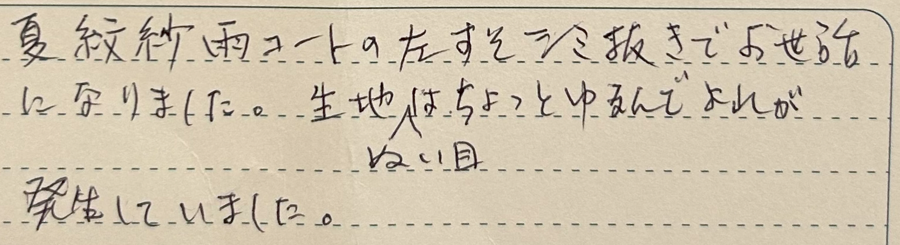 夏紋紗雨コートの左すそシミ抜きでお世話
になりました。生地はちょっとゆるんでよれが
ぬい目
発生していました。